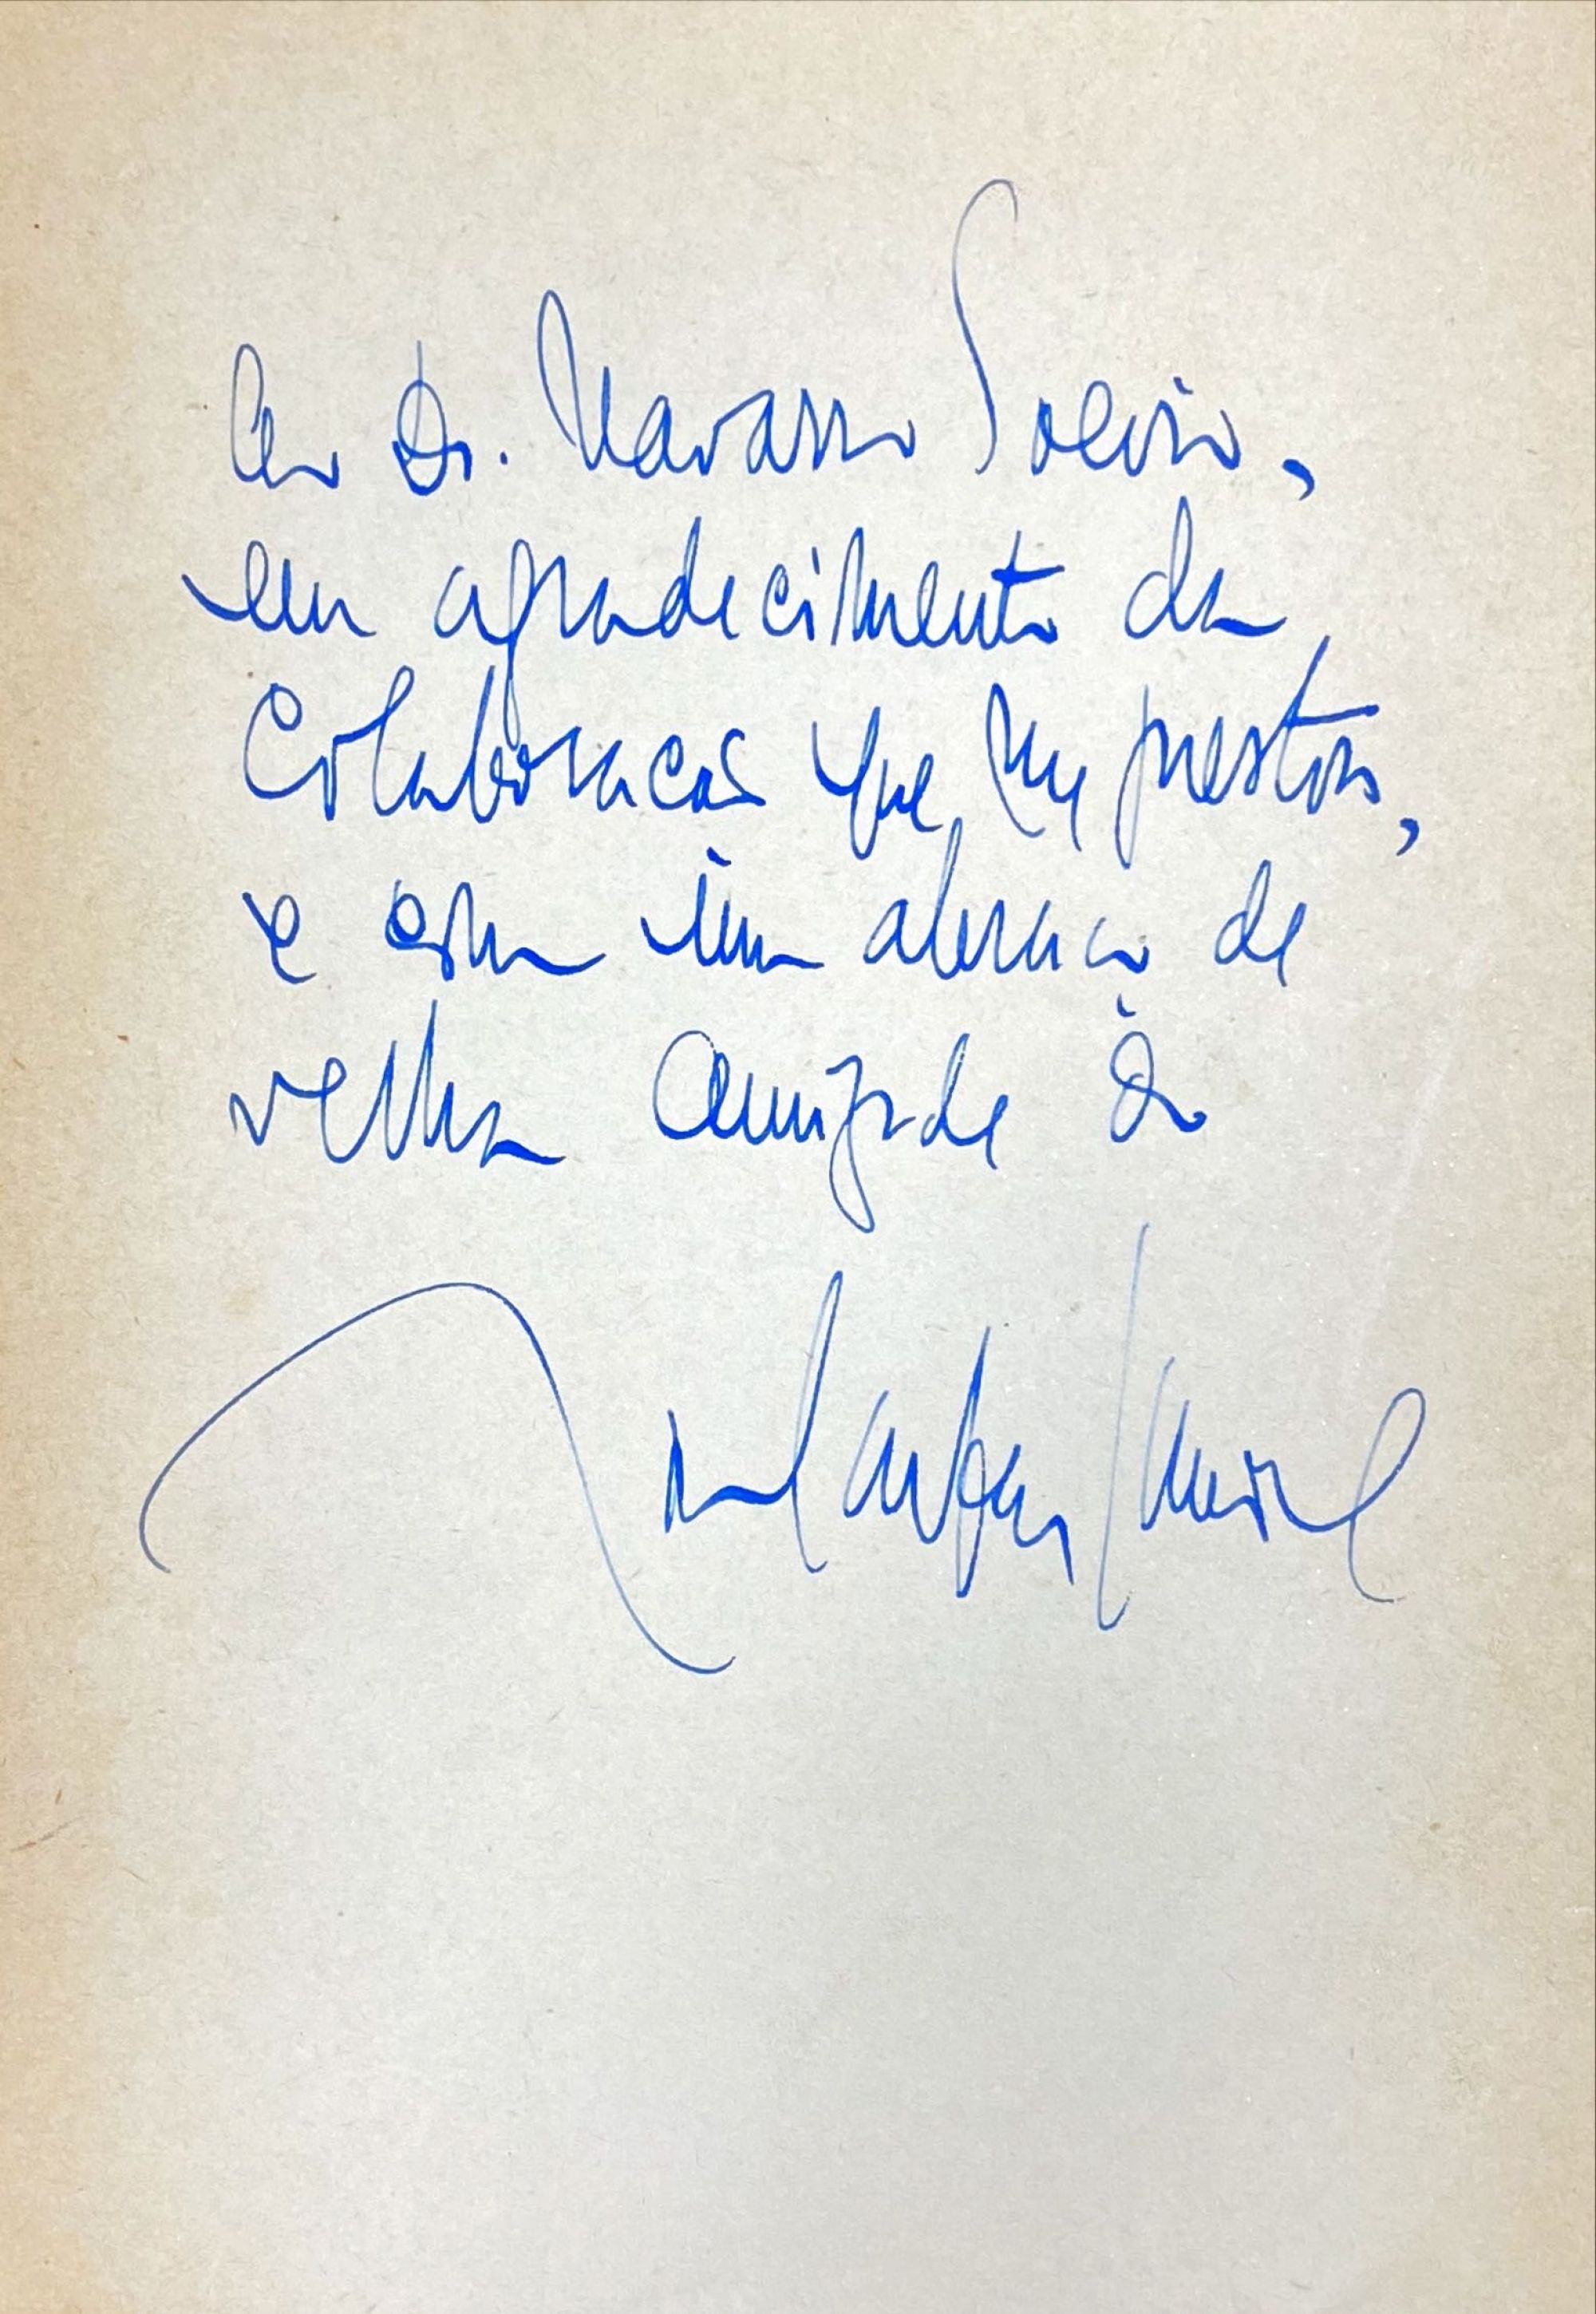 Ao Dr. Navarro Soeiro,
em agradecimento da
colaboração que me prestou,
e com um abraço de
velha amizade do